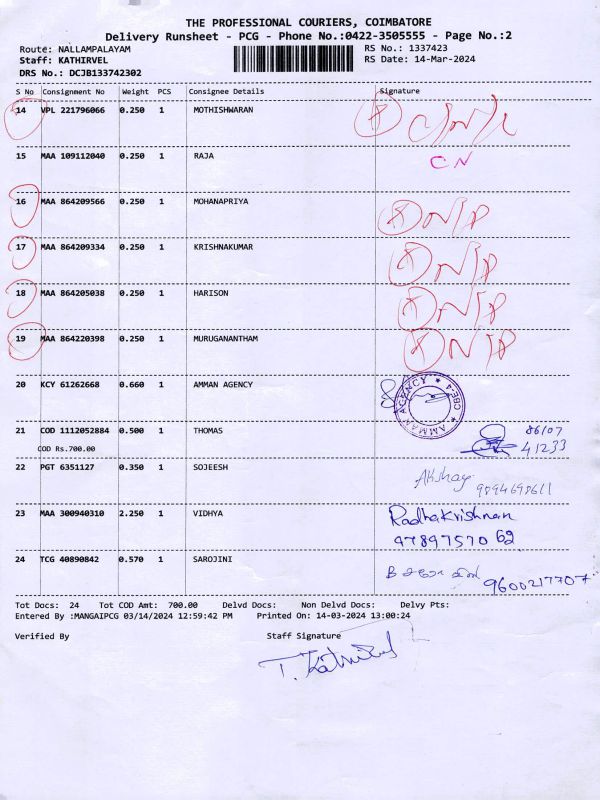 THE PROFESSIONAL COURIERS, COIMBATORE
Delivery Runsheet - PCG - Phone No.:0422-3505555 - Page No.:2
Route: NALLAMPALAYAM
RS No.: 1337423
Staff: KATHIRVEL
RS Date: 14-Mar-2024
DRS No.: DCJB133742302
S No Consignment No Weight PCS Consignee Details Signature
14 VPL 221796066 0.250 1 MOTHISHWARAN
15 MAA 109112040 0.250 1 RAJA CN
16 MAA 864209566 0.250 1 MOHANAPRIYA N/P
17 MAA 864209334 0.250 1 KRISHNAKUMAR N/P
18 MAA 864205038 0.250 1 HARISON N/P
19 MAA 864220398 0.250 1 MURUGANANTHAM N/P
20 KCY 61262668 0.660 1 AMMAN AGENCY
AMMAN AGENCY ★ CBE-4 ★
21 COD 1112052884 0.500 1 THOMAS 86107
COD Rs.700.00 41233
22 PGT 6351127 0.350 1 SOJEESH Akshay
9894698611
23 MAA 300940310 2.250 1 VIDHYA Radhakrishnan
4789757062
24 TCG 40890842 0.570 1 SAROJINI
9600217707
Tot Docs: 24 Tot COD Amt: 700.00 Delvd Docs: Non Delvd Docs: Delvy Pts:
Entered By :MANGAIPCG 03/14/2024 12:59:42 PM Printed On: 14-03-2024 13:00:24
Verified By Staff Signature